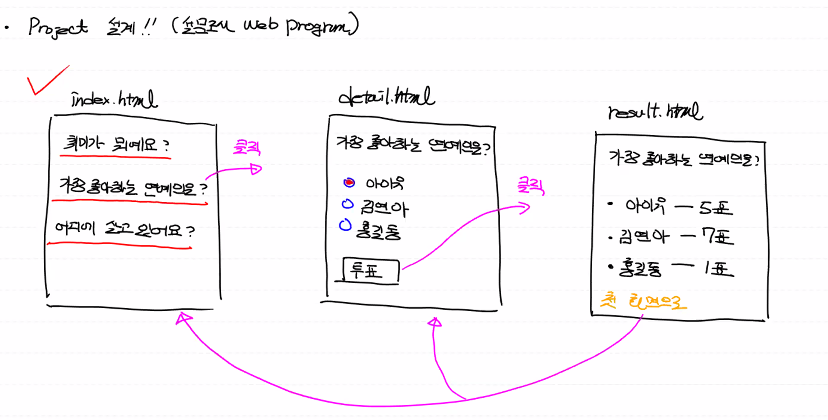 • Project 설계!! (설문조사 Web Program)
index.html
취미가 뭐예요?
가장 좋아하는 연예인은?
어디에 살고 있어요?
클릭
detail.html
가장 좋아하는 연예인은?
아이유
김연아
홍길동
투표
클릭
result.html
가장 좋아하는 연예인은?
• 아이유 — 5표
• 김연아 — 7표
• 홍길동 — 1표
첫 화면으로